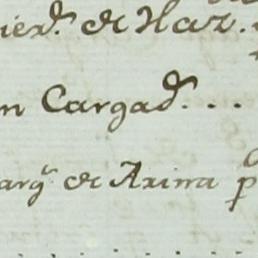 ier.^d de Haz.
n Cargad.^s ...
arg.^s de Axina p